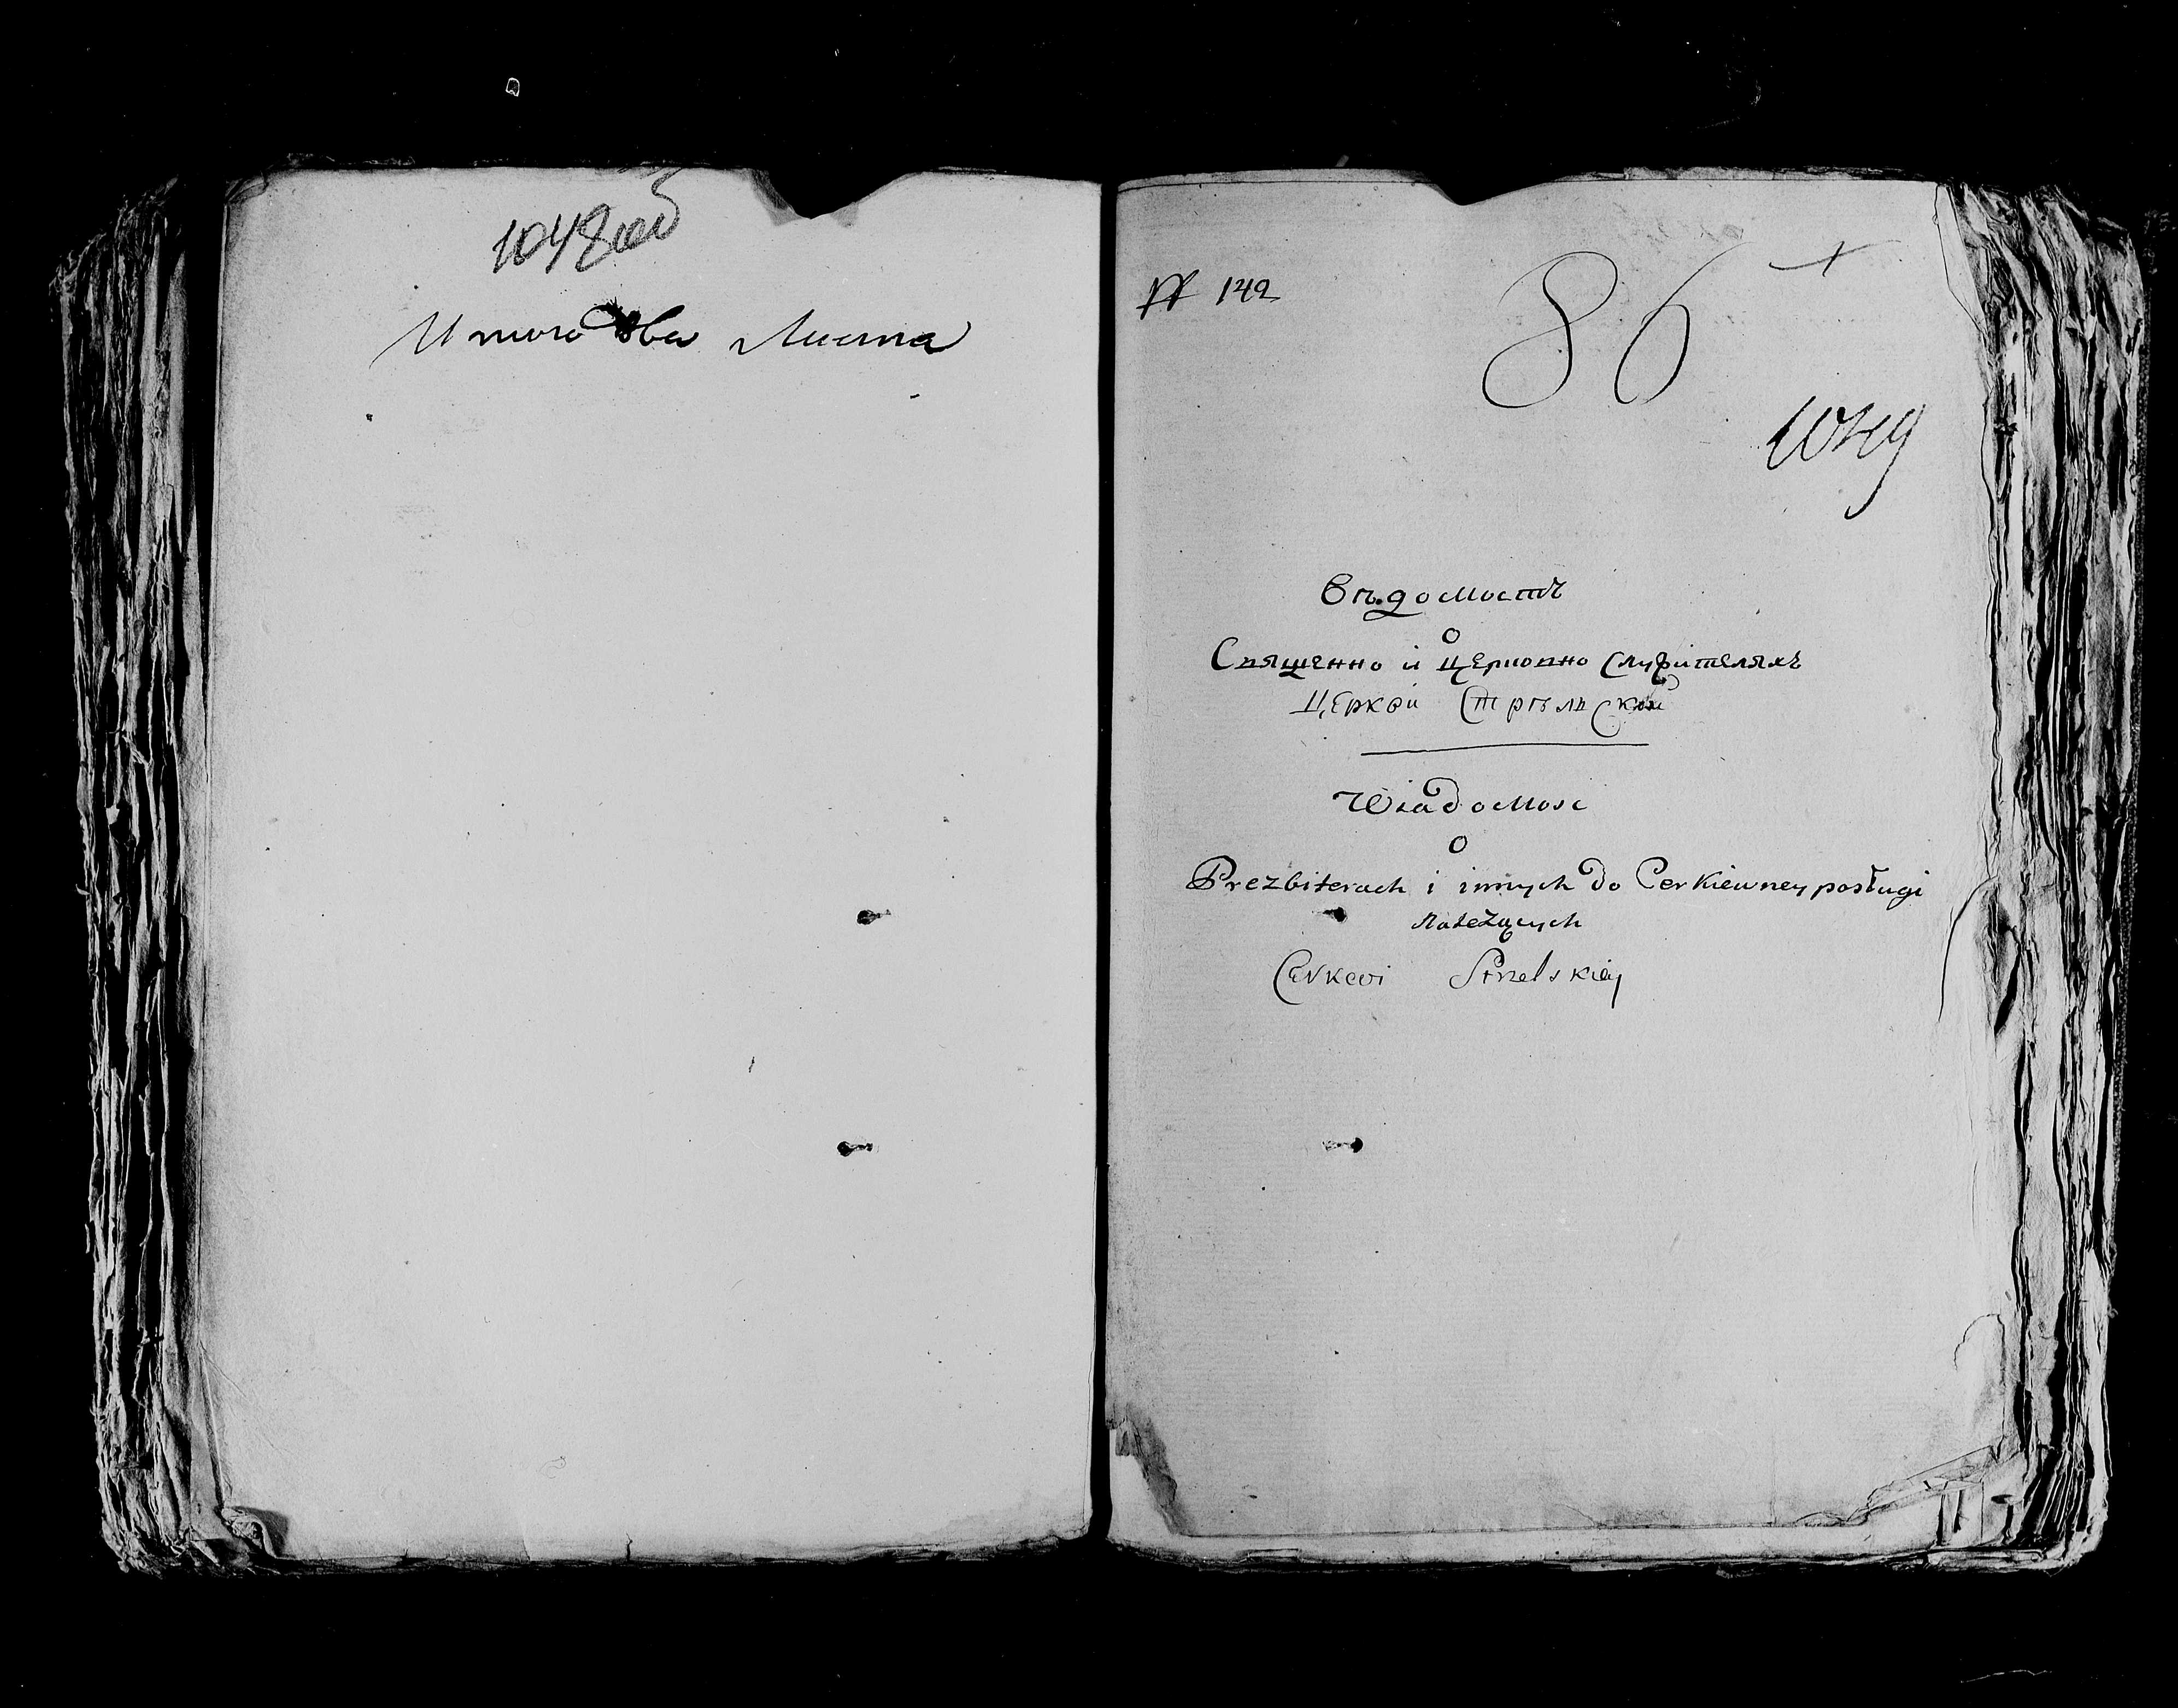 1048 об
Итого два Листа
№ 142
86
1049
Вѣдомостъ
о
Священно и церковно служителяхъ
Церкви Стрѣльской
Wiadomosc
o
Prezbiterach i innych do Cerkiewney posługi
Należących
Cerkwi Strzelskiey